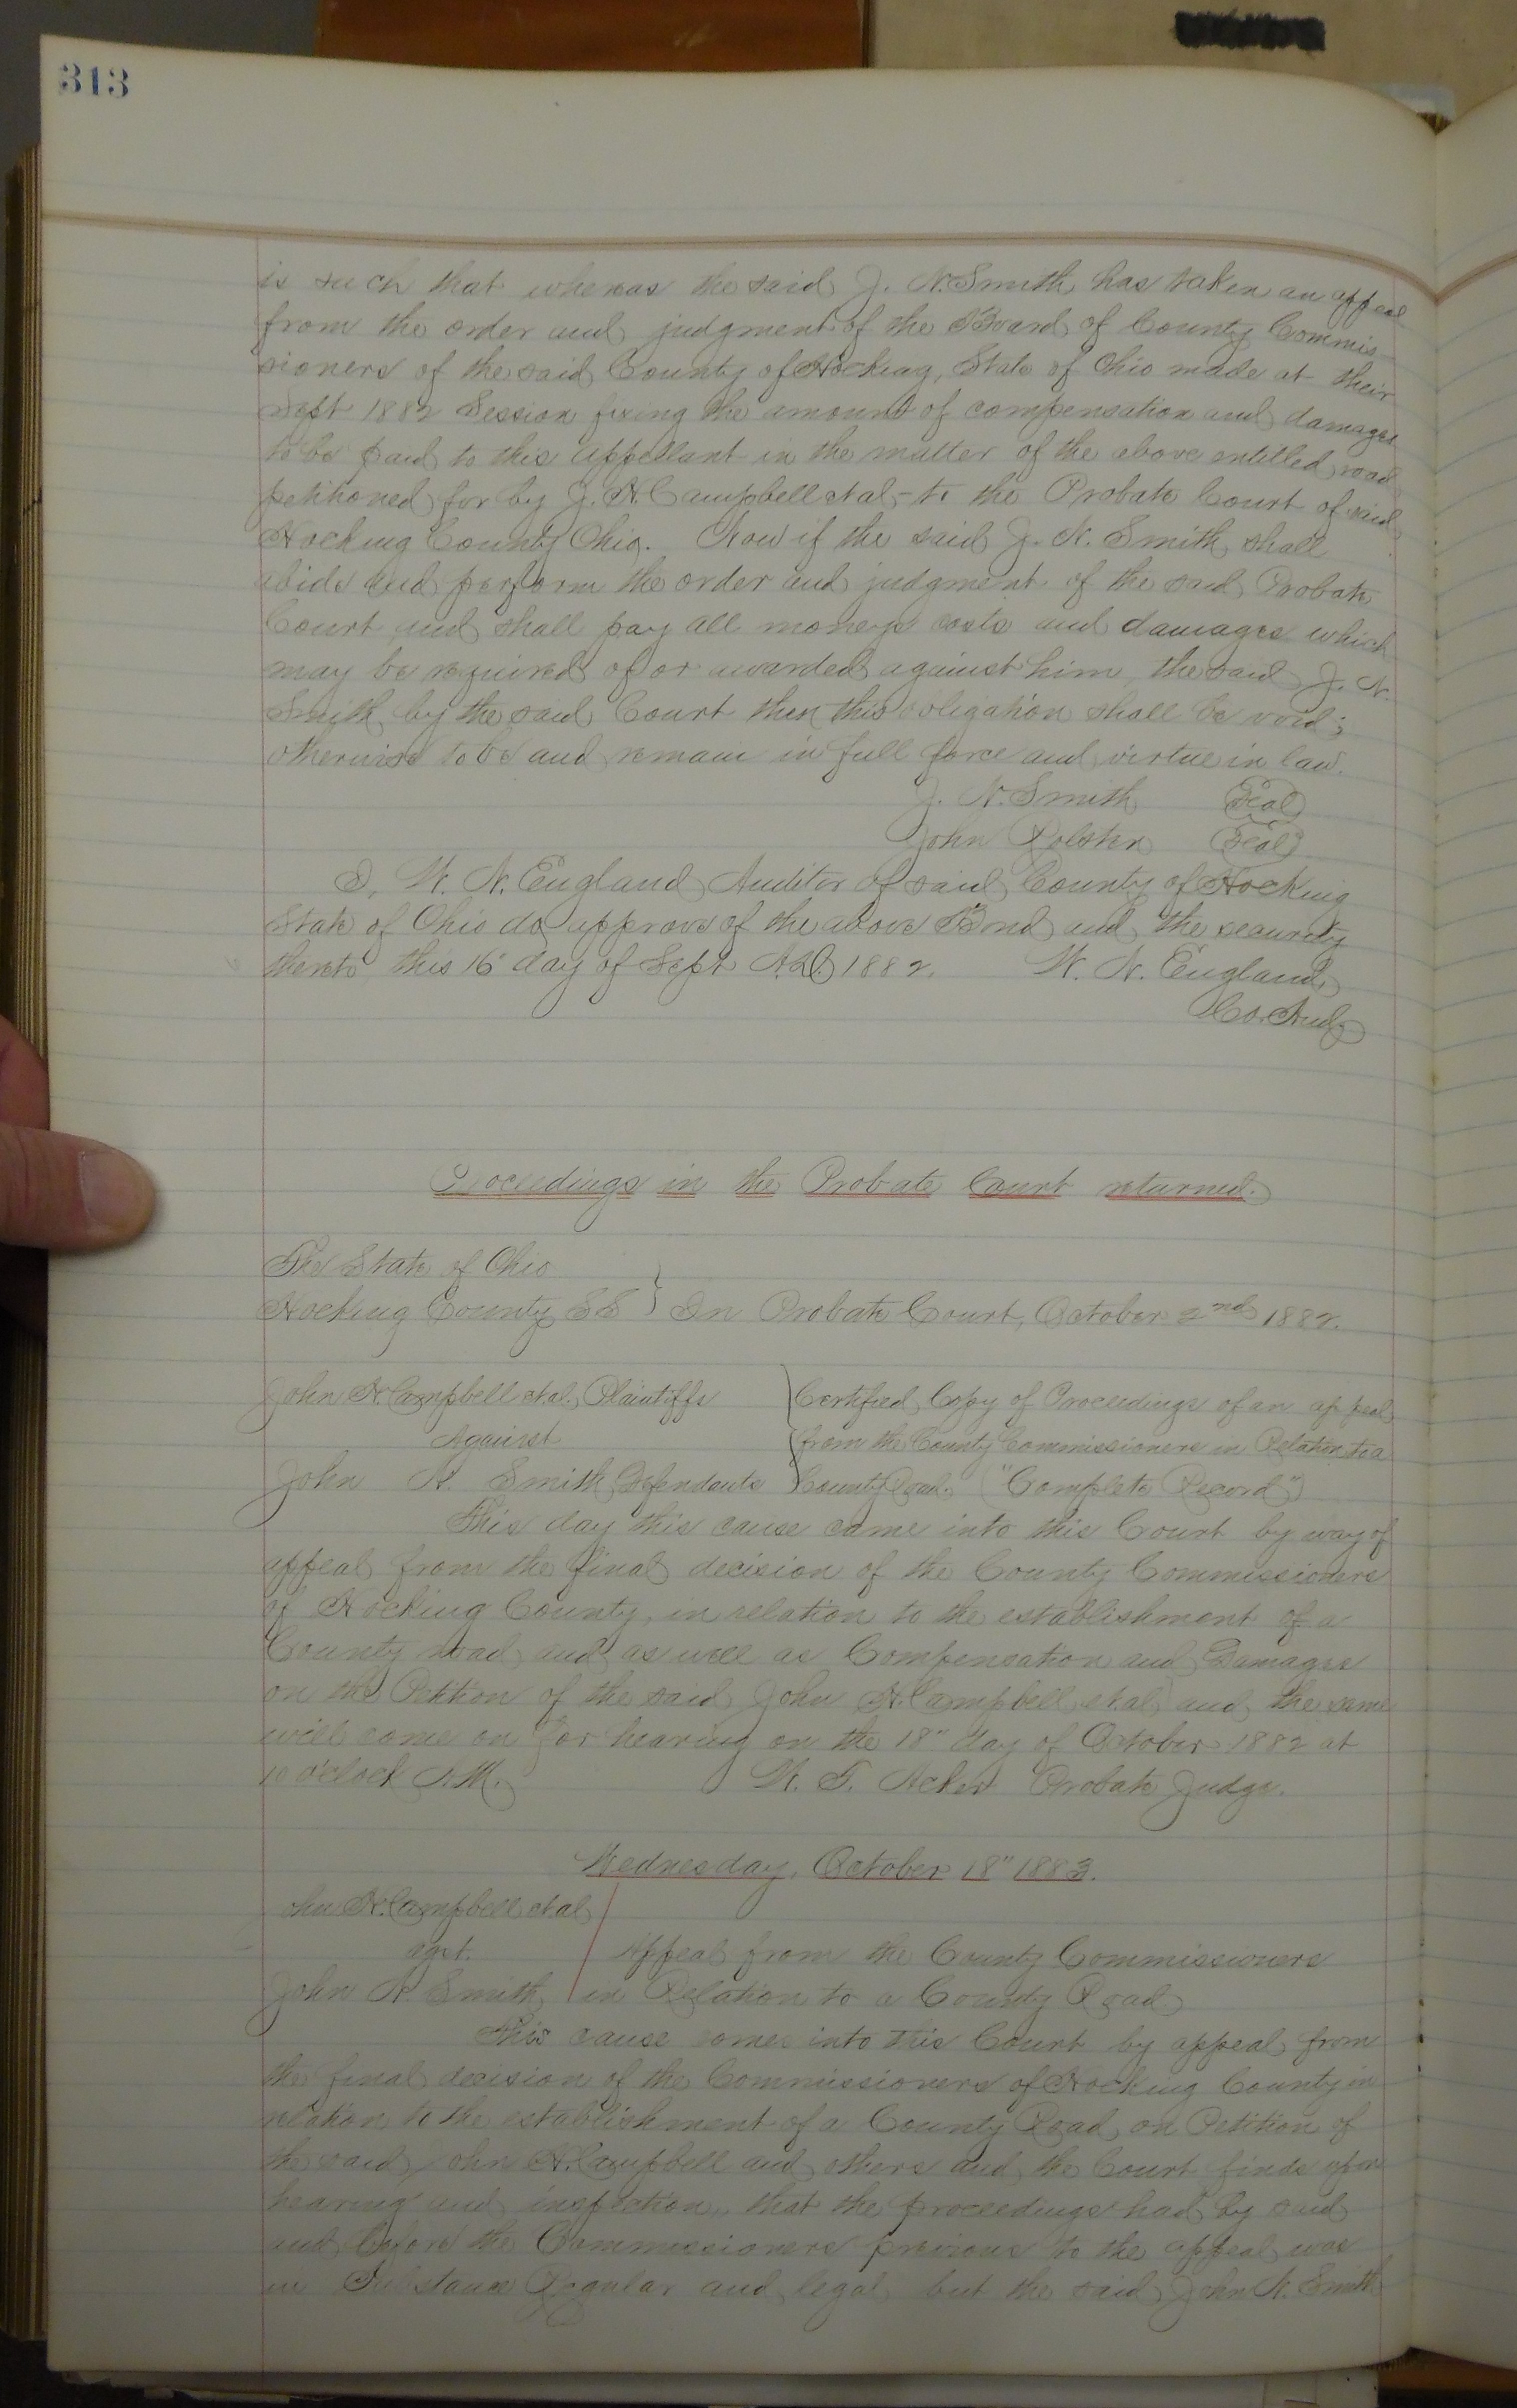 313
is such that whereas the said J. N. Smith has taken an appeal
from the order and judgment of the Board of County Commis
sioners of the said County of Hocking, State of Ohio made at their
Sept 1882 Session fixing the amount of compensation and damages
to be paid to this appellant in the matter of the above entitled road
petitioned for by J. H. Campbell et al, to the Probate Court of said
Hocking County Ohio. Now if the said J. N. Smith shall
abide and perform the order and judgment of the said Probate
Court and shall pay all moneys costs and damages which
may be required of or awarded against him the said J. N.
Smith by the said Court then this obligation shall be void;
otherwise to be and remain in full force and virtue in law.
J. N. Smith (Seal)
John (Seal)
I, W. N. England Auditor of said County of Hocking
State of Ohio do approve of the above Bond and the security
thereto this 16" day of Sept A.D. 1882. W. N. England,
Co. Aud.
Proceedings in the Probate Court returned.
The State of Ohio
Hocking County SS } In Probate Court, October 2nd 1882.
John H. Campbell et al. Plaintiffs Certified Copy of Proceedings of an appeal
Against from the County Commissioners in Relation to a
John N. Smith Defendants County Road. ("Complete Record")
This day this cause came into this Court by way of
appeal from the final decision of the County Commissioners
of Hocking County, in relation to the establishment of a
County road and as well as Compensation and Damages
on the Petition of the said John H. Campbell et al and the same
will come on for hearing on the 18" day of October 1882 at
10 o'clock A.M. W. T. Acker Probate Judge.
Wednesday, October 18" 1883.
ohn H. Campbell et al
agst. Appeal from the County Commissioners
John N. Smith in Relation to a County Road
This cause comes into this Court by appeal from
the final decision of the Commissioners of Hocking County in
relation to the establishment of a County Road on Petition of
the said John H. Campbell and others and the Court finds upon
hearing and inspection, that the proceedings had by said
and before the Commissioners previous to the appeal was
in Substance Regular and legal but the said John N. Smith